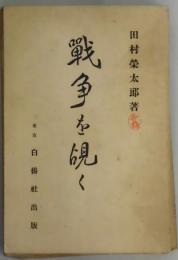 田村榮太郎著
戰争を覘く
東京 白揚社出版